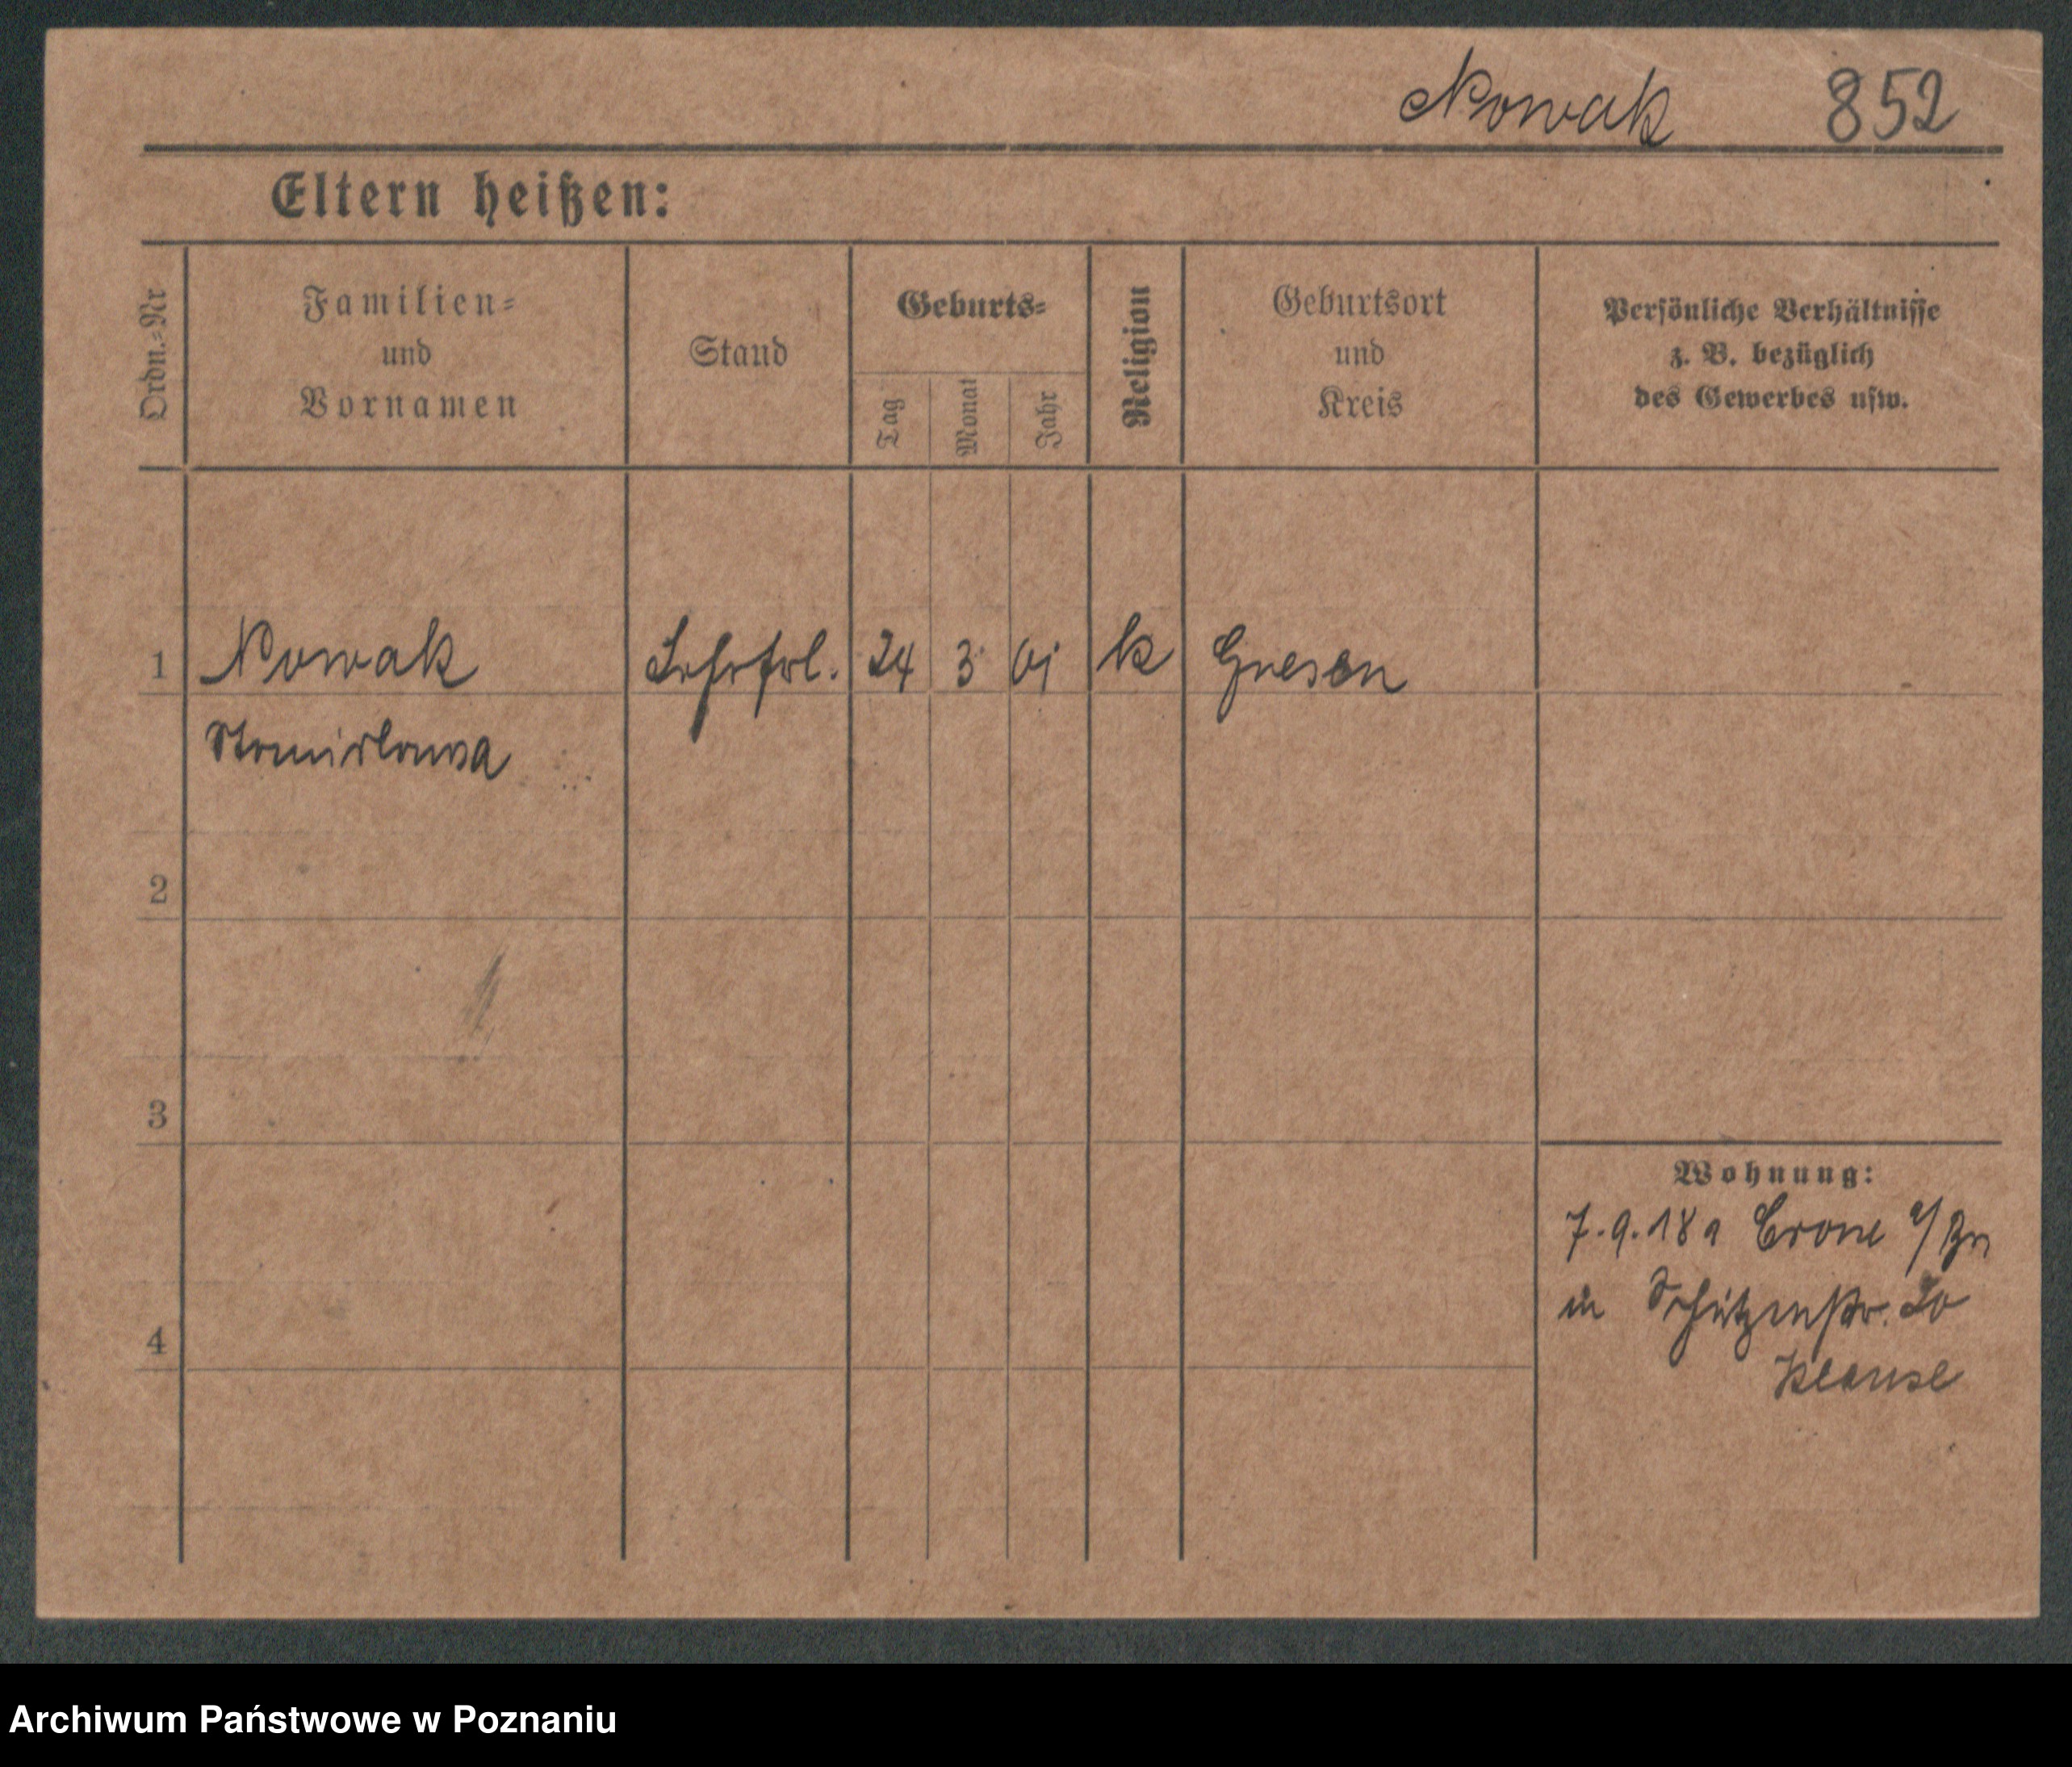 Nowak 852
Eltern heißen:
Ordn.=Nr
Familien=
und
Vornamen
Stand
Geburts=
Tag
Monat
Jahr
Religion
Geburtsort
und
Kreis
Persönliche Verhältnisse
z. B. bezüglich
des Gewerbes usw.
1 Nowak Lehrfrl. 24 3 01 k Gnesen
Stanislawa
2
3
4
Wohnung:
7.9.18 a Crone a/Br
in Schützenstr.
Klause
Archiwum Państwowe w Poznaniu